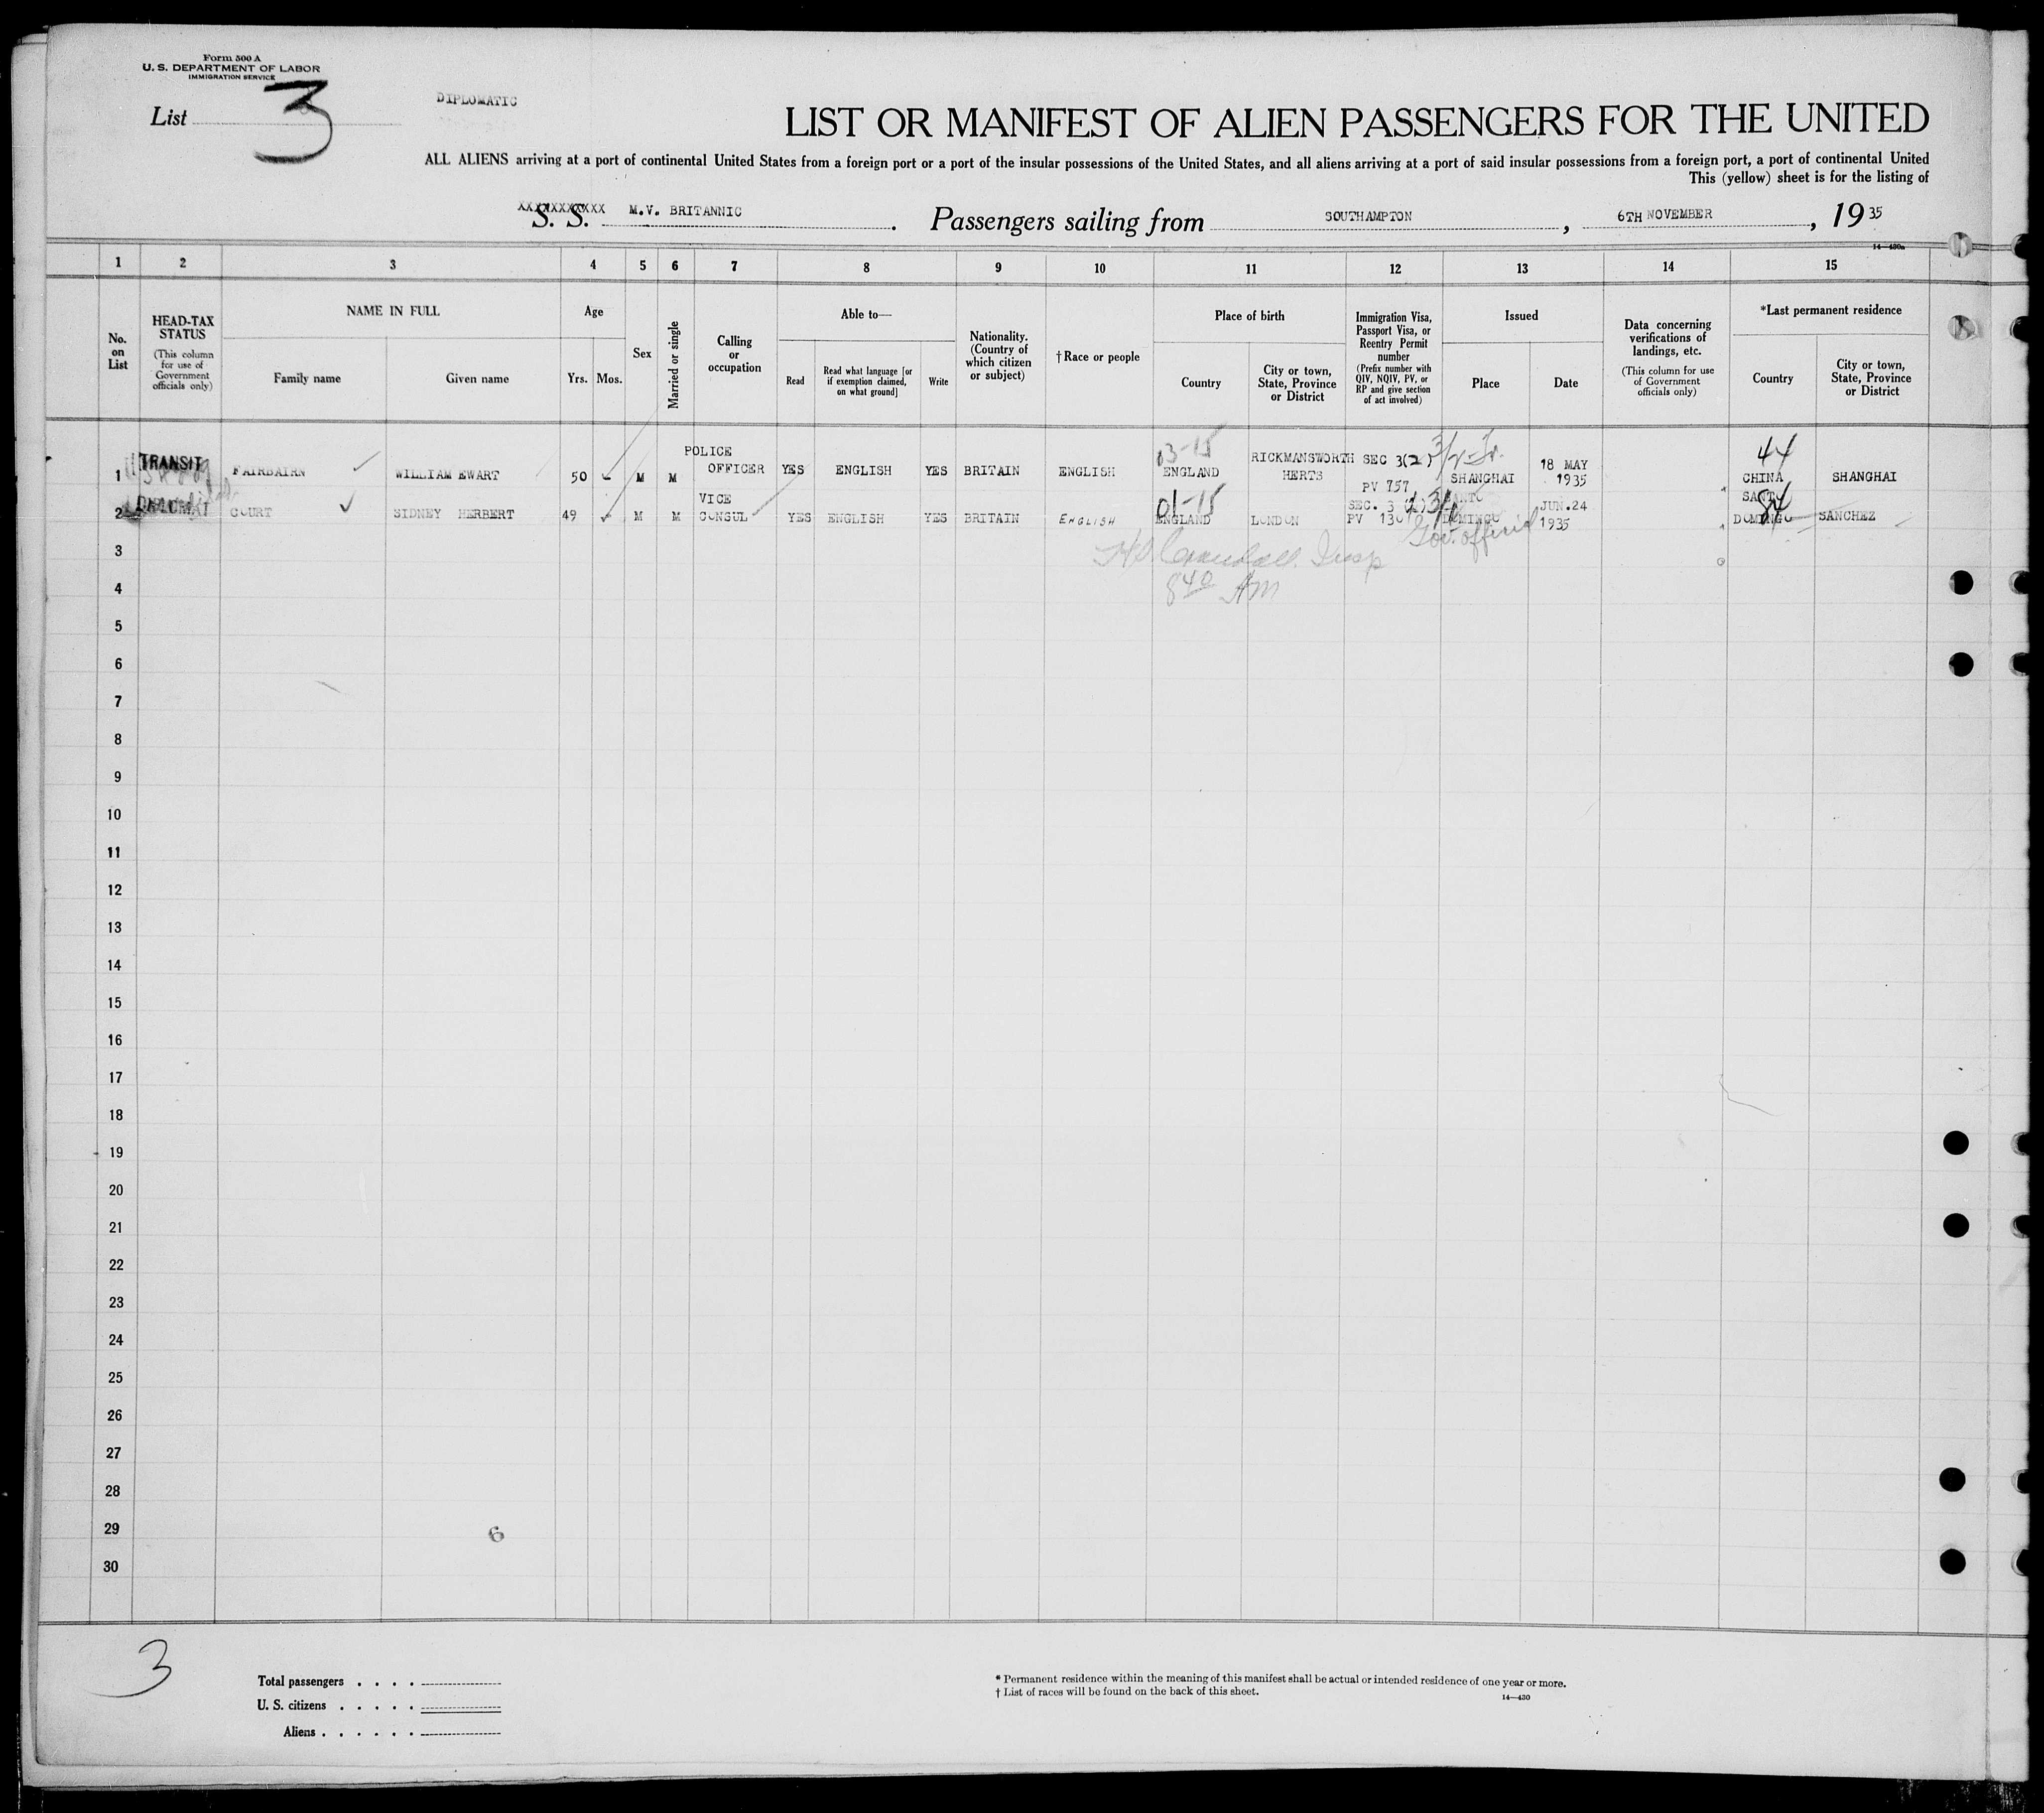 Form 500 A
U. S. DEPARTMENT OF LABOR
IMMIGRATION SERVICE
List 3
DIPLOMATIC
LIST OR MANIFEST OF ALIEN PASSENGERS FOR THE UNITED
ALL ALIENS arriving at a port of continental United States from a foreign port or a port of the insular possessions of the United States, and all aliens arriving at a port of said insular possessions from a foreign port, a port of continental United
This (yellow) sheet is for the listing of
S. S. M.V. BRITANNIC. Passengers sailing from SOUTHAMPTON, 6TH NOVEMBER, 1935
14—430a
1 2 3 4 5 6 7 8 9 10 11 12 13 14 15
No. on List
HEAD-TAX STATUS (This column for use of Government officials only)
NAME IN FULL
Family name
Given name
Age
Yrs. Mos.
Sex
Married or single
Calling or occupation
Able to—
Read
Read what language [or if exemption claimed, on what ground]
Write
Nationality. (Country of which citizen or subject)
†Race or people
Place of birth
Country
City or town, State, Province or District
Immigration Visa, Passport Visa, or Reentry Permit number (Prefix number with QIV, NQIV, PV, or RP and give section of act involved)
Issued
Place
Date
Data concerning verifications of landings, etc. (This column for use of Government officials only)
*Last permanent residence
Country
City or town, State, Province or District
1 TRANSIT FAIRBAIRN WILLIAM EWART 50 M M POLICE OFFICER YES ENGLISH YES BRITAIN ENGLISH 03-15 ENGLAND RICKMANSWORTH HERTS SEC 3(2) PV 757 SHANGHAI 18 MAY 1935 44 CHINA SHANGHAI
2 COURT SIDNEY HERBERT 49 M M VICE CONSUL YES ENGLISH YES BRITAIN ENGLISH 01-15 ENGLAND LONDON SEC. 3 PV SANTO DOMINGO JUN.24 1935 84 SANTO DOMINGO SANCHEZ
Gov. official
Insp
8 40 AM
3
4
5
6
7
8
9
10
11
12
13
14
15
16
17
18
19
20
21
22
23
24
25
26
27
28
29
6
30
3
Total passengers . . . .
U. S. citizens . . . . .
Aliens . . . . . .
* Permanent residence within the meaning of this manifest shall be actual or intended residence of one year or more.
† List of races will be found on the back of this sheet.
14—430